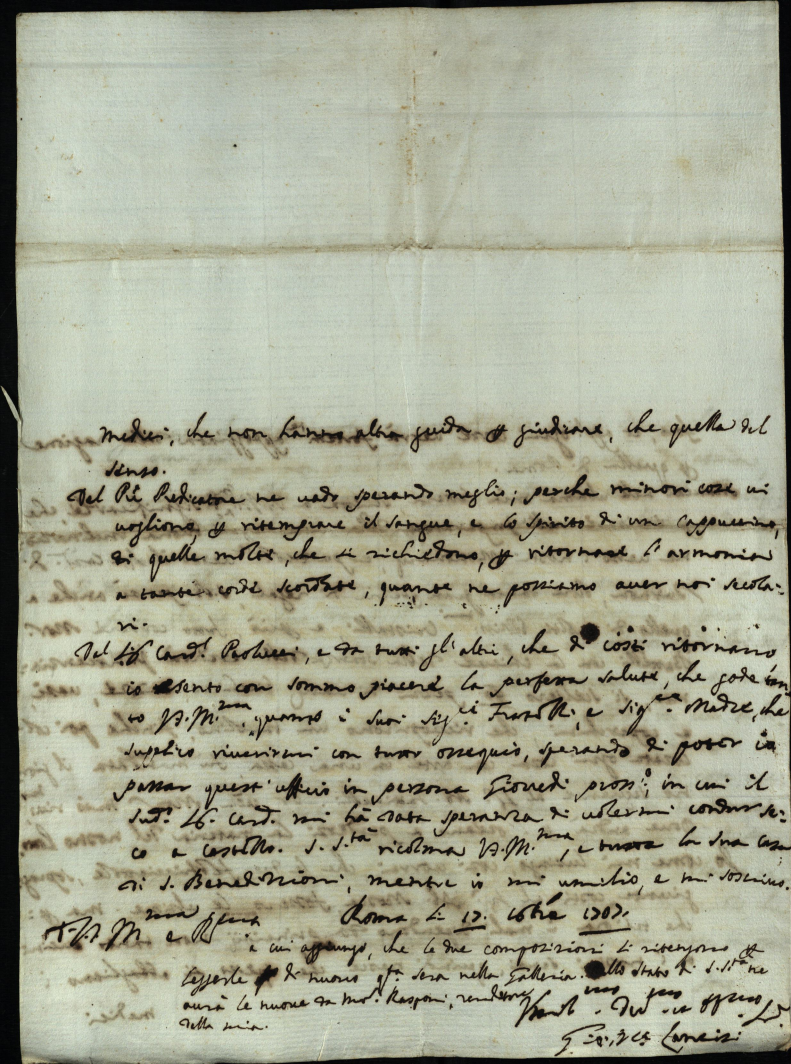 medici, che non hanno altra guida p giudicare, che quella del
senso.
Del P̃re Predicatore ne vado sperando meglio; perche minori cose vi
vogliono, p ritemprare il sangue, e lo spirito di un Cappuccino,
di quelle molte, che si richiedono, p ritornare l'armonia
a tante corde scordate, quante ne possiamo aver noi secola=
ri.
Dal Sig. Card.l Paolucci, e da tutti gl'altri, che di costì ritornano
io sento con sommo piacere la perfetta salute, che gode tan=
to V.S. Ill.ma, quanto i suoi Sig.ri Fratelli, e Sig.ra Madre, che
supplico riverirmi con tutto ossequio, sperando di poter io
passar quest'uffizio in persona Giovedì pross.o, in cui il
Sud.o Sig. Card. mi hà data speranza di volermi condur se=
co a Castello. S. S.tà ricolma V.S. Ill.ma, e tutta la sua casa
di S. Benedizioni, mentre io mi umilio, e mi soscrivo.
Roma li 17. 8bre 1707.
à cui aggiungo, che le due composizioni si ritengono p
leggerle di nuovo q.ta sera nella Galleria. Dello stato di S. S.tà ne
avrà le nuove da Mons.r Rasponi,
della mia.
Gio: M.a Lancisi